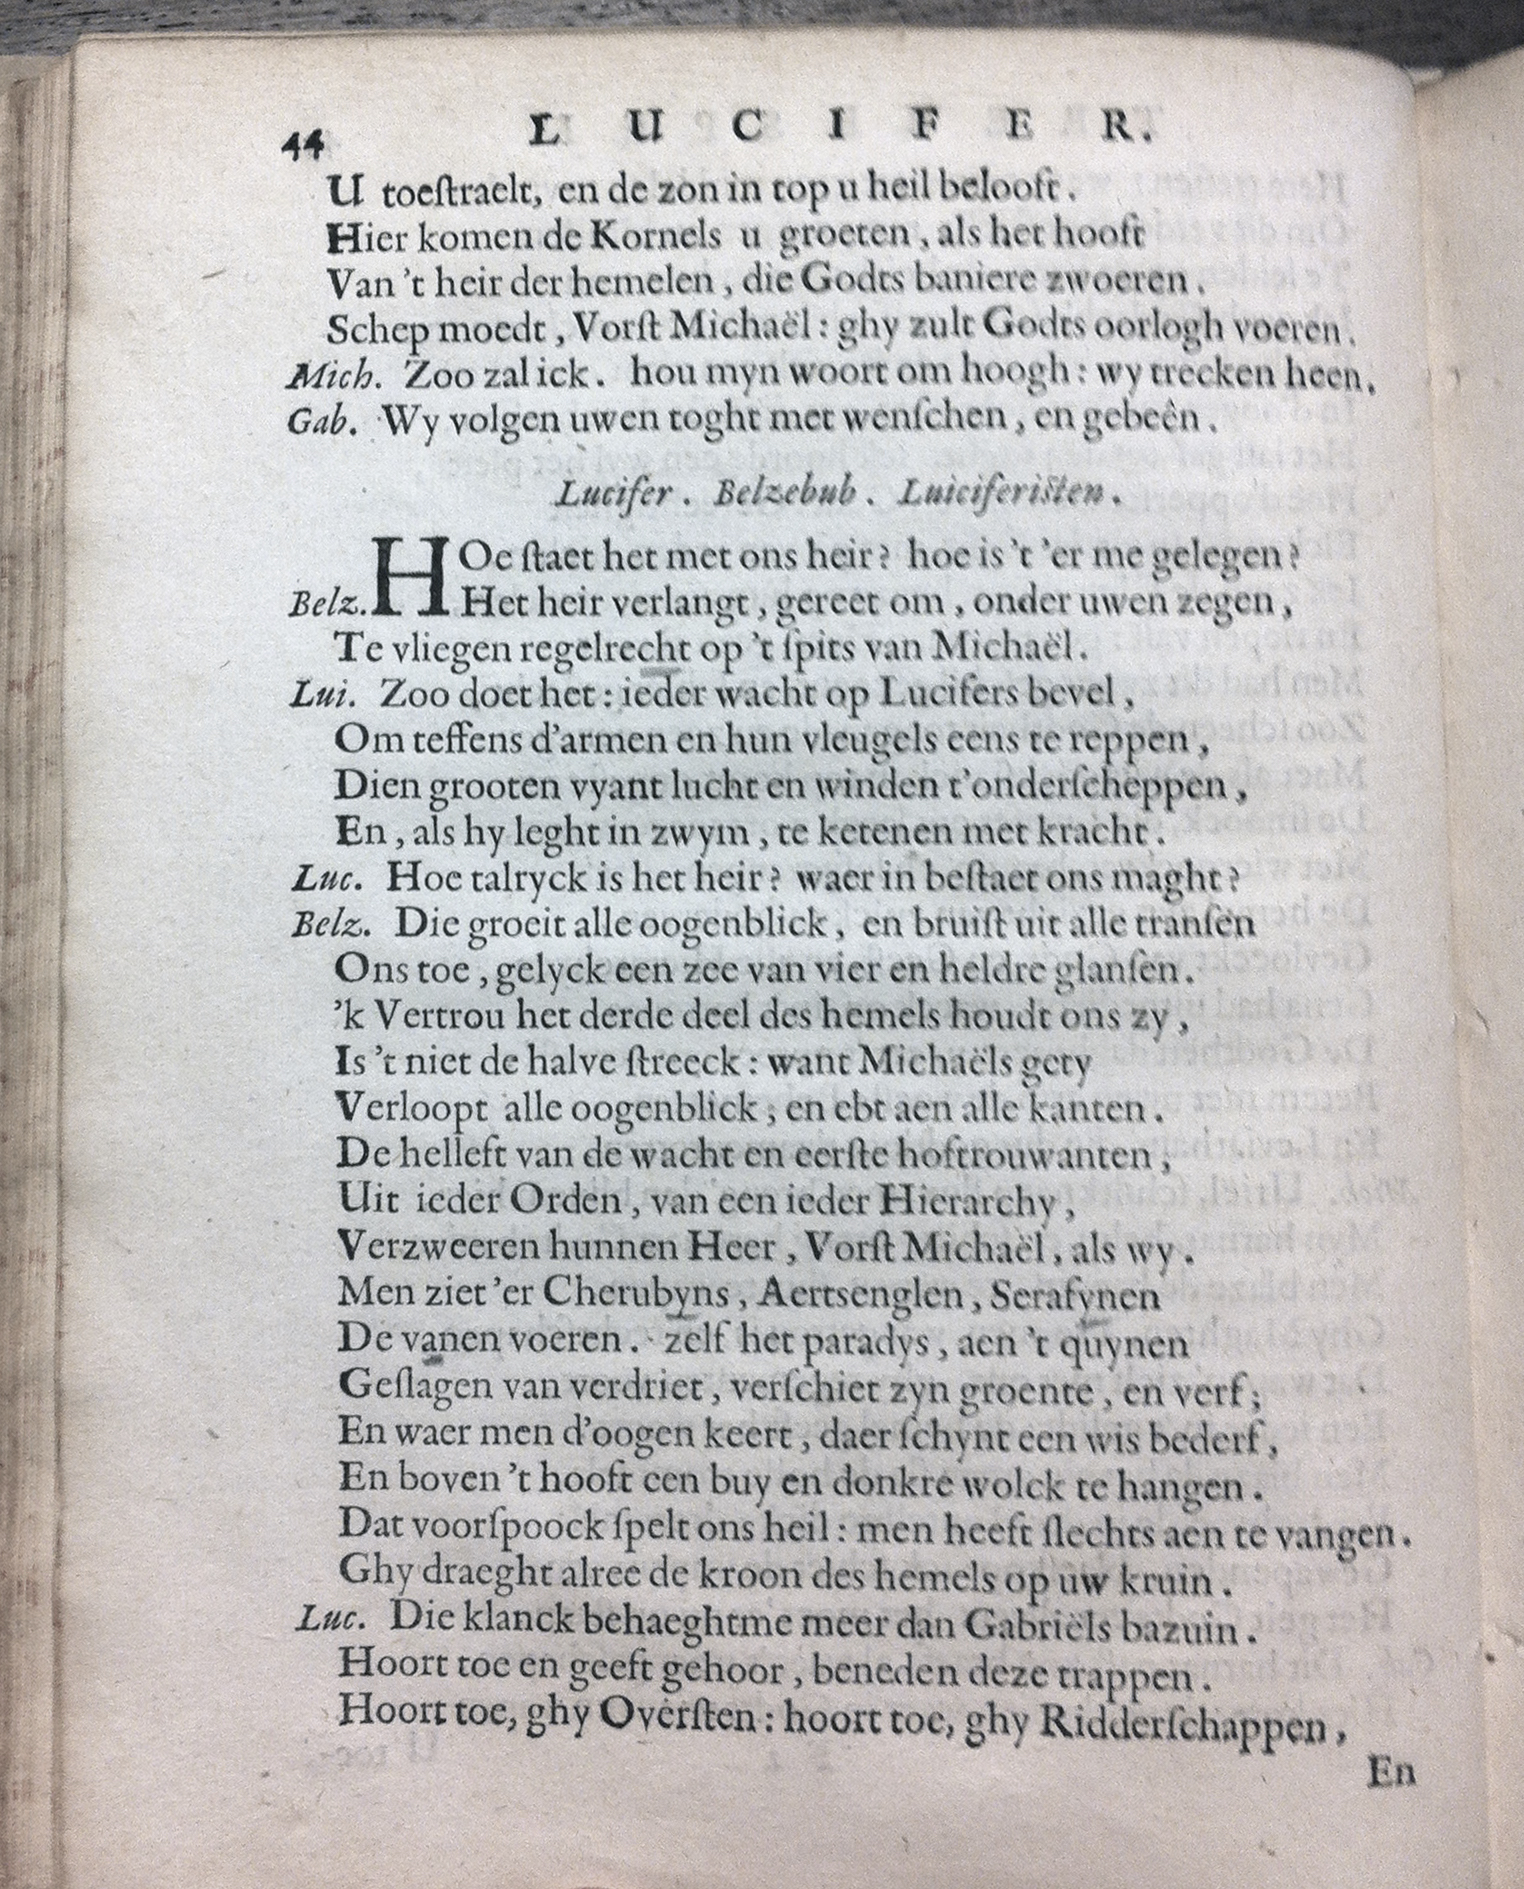 44 LUCIFER.
U toeſtraelt, en de zon in top u heil belooft.
Hier komen de Kornels u groeten, als het hooft
Van 't heir der hemelen, die Godts baniere zwoeren.
Schep moedt, Vorſt Michaël: ghy zult Godts oorlogh voeren.
Mich. Zoo zal ick. hou myn woort om hoogh: wy trecken heen.
Gab. Wy volgen uwen toght met wenſchen, en gebeên.
Lucifer. Belzebub. Luiciferiſten.
HOe ſtaet het met ons heir? hoe is 't 'er me gelegen?
Belz. Het heir verlangt, gereet om, onder uwen zegen,
Te vliegen regelrecht op 't ſpits van Michaël.
Lui. Zoo doet het: ieder wacht op Lucifers bevel,
Om teffens d'armen en hun vleugels eens te reppen,
Dien grooten vyant lucht en winden t'onderſcheppen,
En, als hy leght in zwym, te ketenen met kracht.
Luc. Hoe talryck is het heir? waer in beſtaet ons maght?
Belz. Die groeit alle oogenblick, en bruiſt uit alle tranſen
Ons toe, gelyck een zee van vier en heldre glanſen.
'k Vertrou het derde deel des hemels houdt ons zy,
Is 't niet de halve ſtreeck: want Michaëls gety
Verloopt alle oogenblick, en ebt aen alle kanten.
De helleft van de wacht en eerſte hoftrouwanten,
Uit ieder Orden, van een ieder Hierarchy,
Verzweeren hunnen Heer, Vorſt Michaël, als wy.
Men ziet 'er Cherubyns, Aertsenglen, Serafynen
De vanen voeren. zelf het paradys, aen 't quynen
Geſlagen van verdriet, verſchiet zyn groente, en verf;
En waer men d'oogen keert, daer ſchynt een wis bederf,
En boven 't hooft een buy en donkre wolck te hangen.
Dat voorſpoock ſpelt ons heil: men heeft ſlechts aen te vangen.
Ghy draeght alree de kroon des hemels op uw kruin.
Luc. Die klanck behaeghtme meer dan Gabriëls bazuin.
Hoort toe en geeft gehoor, beneden deze trappen.
Hoort toe, ghy Overſten: hoort toe, ghy Ridderſchappen,
En